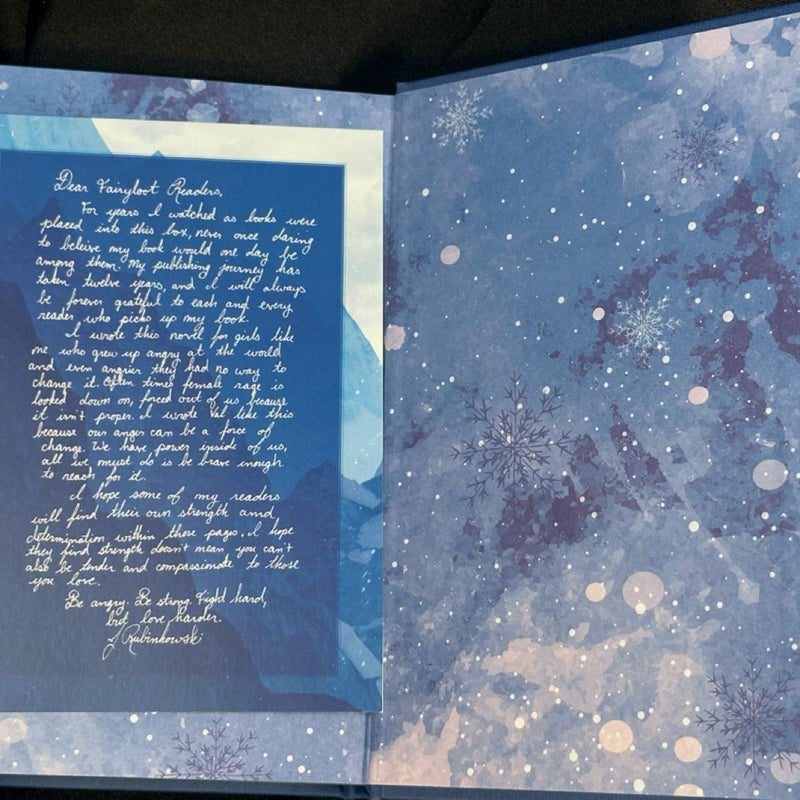 Dear Fairyloot Readers,
For years I watched as books were
placed into this box, never once daring
to beleive my book would one day be
among them. My publishing journey has
taken twelve years, and I will always
be forever grateful to each and every
reader who picks up my book.
I wrote this novel for girls like
me who grew up angry at the world
and even angrier they had no way to
change it. Often times female rage is
looked down on, forced out of us because
it isn't proper. I wrote Val like this
because our anger can be a force of
change. We have power inside of us,
all we must do is be brave enough
to reach for it.
I hope some of my readers
will find their own strength and
determination within these pages. I hope
they find strength doesn't mean you can't
also be tender and compassionate to those
you love.
Be angry. Be strong. Fight hard,
but love harder.
J Rubinkowski